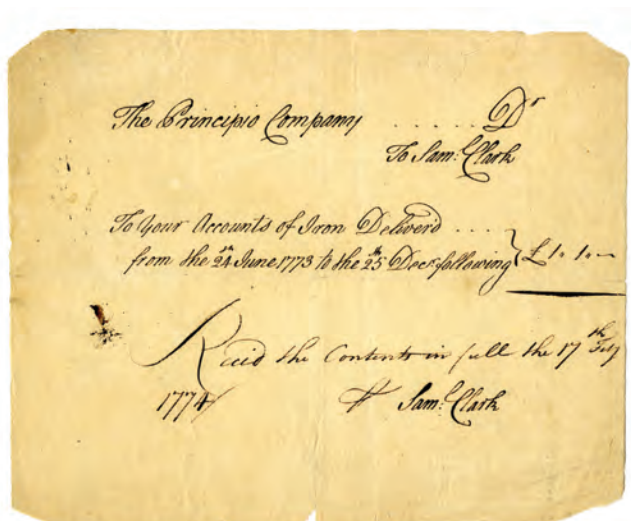 The Principio Company . . . . . . Dr
To Saml. Clark
To Your Accounts of Iron Deliver'd . . . .
from the 24th June 1773 to the 25th Decr. following } £ 1. 1. -
Rec̄d the Contents in full the 17th Feby
1774 Ꝑ Saml. Clark